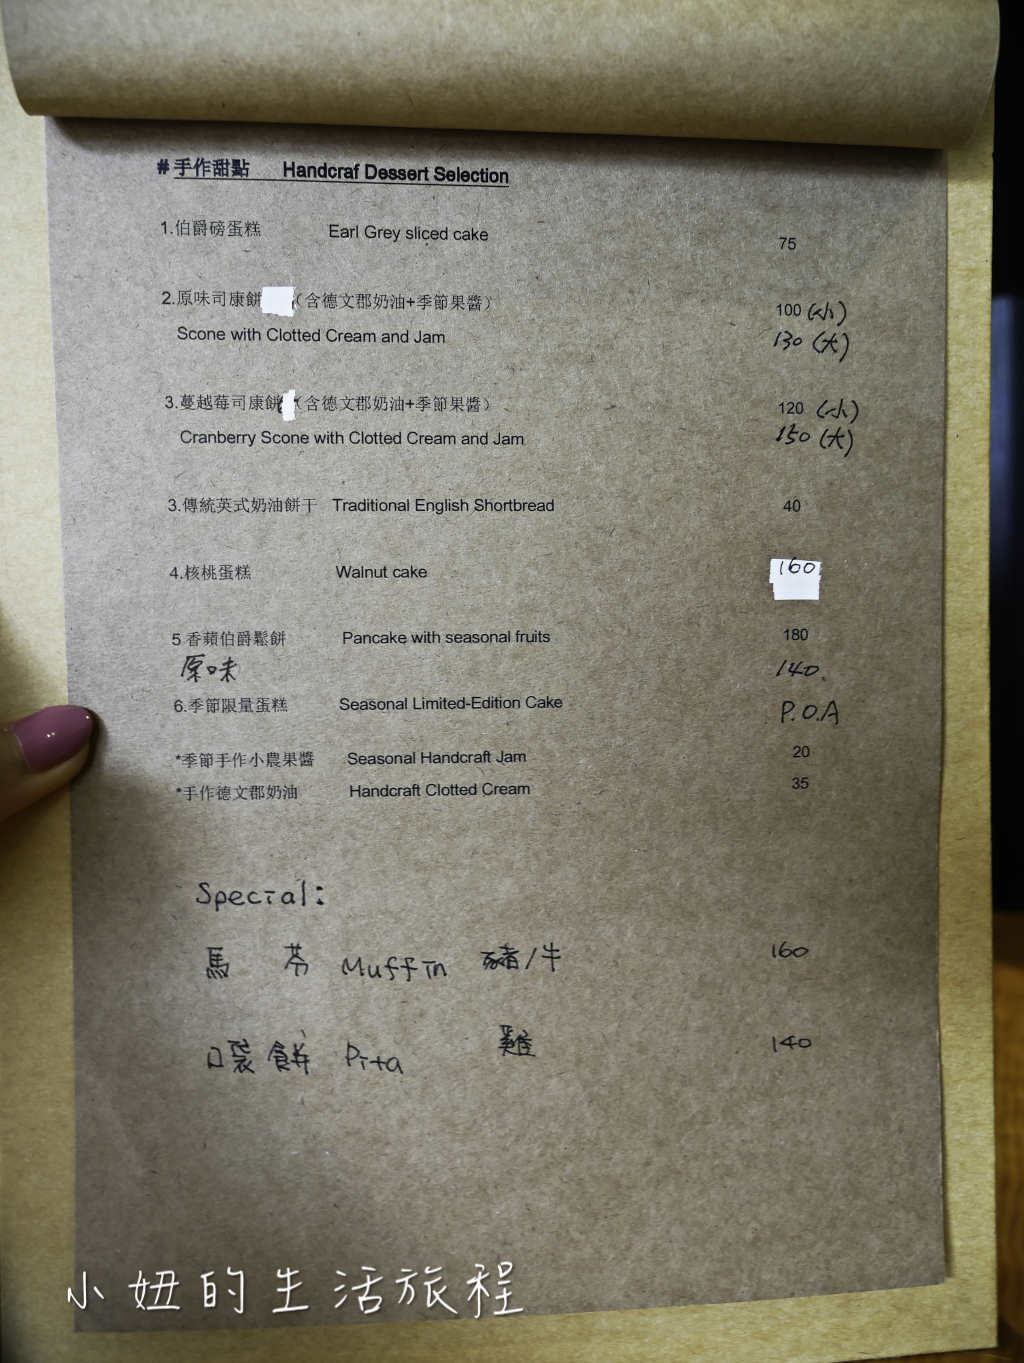 # 手作甜點 Handcraf Dessert Selection
1.伯爵磅蛋糕 Earl Grey sliced cake 75
2.原味司康餅 (含德文郡奶油+季節果醬) 100 (小)
Scone with Clotted Cream and Jam 130 (大)
3.蔓越莓司康餅 (含德文郡奶油+季節果醬) 120 (小)
Cranberry Scone with Clotted Cream and Jam 150 (大)
3.傳統英式奶油餅干 Traditional English Shortbread 40
4.核桃蛋糕 Walnut cake 160
5 香蘋伯爵鬆餅 Pancake with seasonal fruits 180
原味 140.
6.季節限量蛋糕 Seasonal Limited-Edition Cake P.O.A
*季節手作小農果醬 Seasonal Handcraft Jam 20
*手作德文郡奶油 Handcraft Clotted Cream 35
Special:
馬芬 Muffin 豬/牛 160
口袋餅 Pita 雞 140
小妞的生活旅程